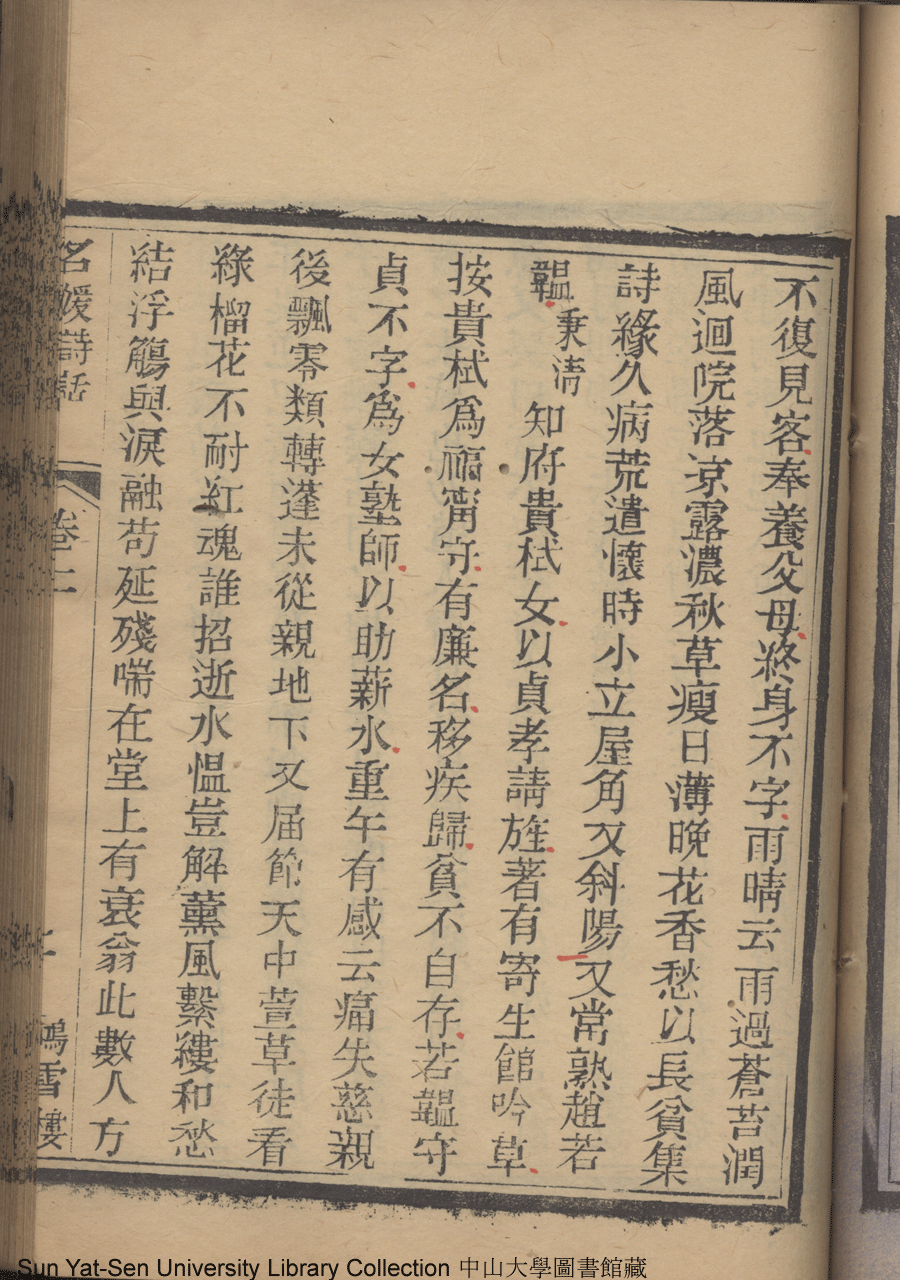 不復見客奉養父母終身不字雨晴云雨過蒼苔潤
風迴院落凉露濃秋草瘦日薄晚花香愁以長貧集
詩緣久病荒遣懷時小立屋角又斜陽又常熟趙若
韞秉清知府貴栻女以貞孝請旌著有寄生館吟草
按貴栻爲福甯守有廉名移疾歸貧不自存若韞守
貞不字爲女塾師以助薪水重午有感云痛失慈親
後飄零類轉蓬未從親地下又届節天中萱草徒看
綠榴花不耐紅魂誰招逝水慍豈解薰風繫縷和愁
結浮觴與淚融苟延殘喘在堂上有衰翁此數人方
名媛詩話
卷
鴻雪樓
Sun Yat-Sen University Library Collection 中山大學圖書館藏